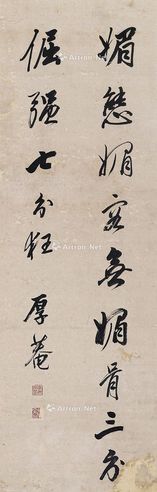 媚態媚容無媚骨三分
倔强七分狂
厚菴
Artron.Net